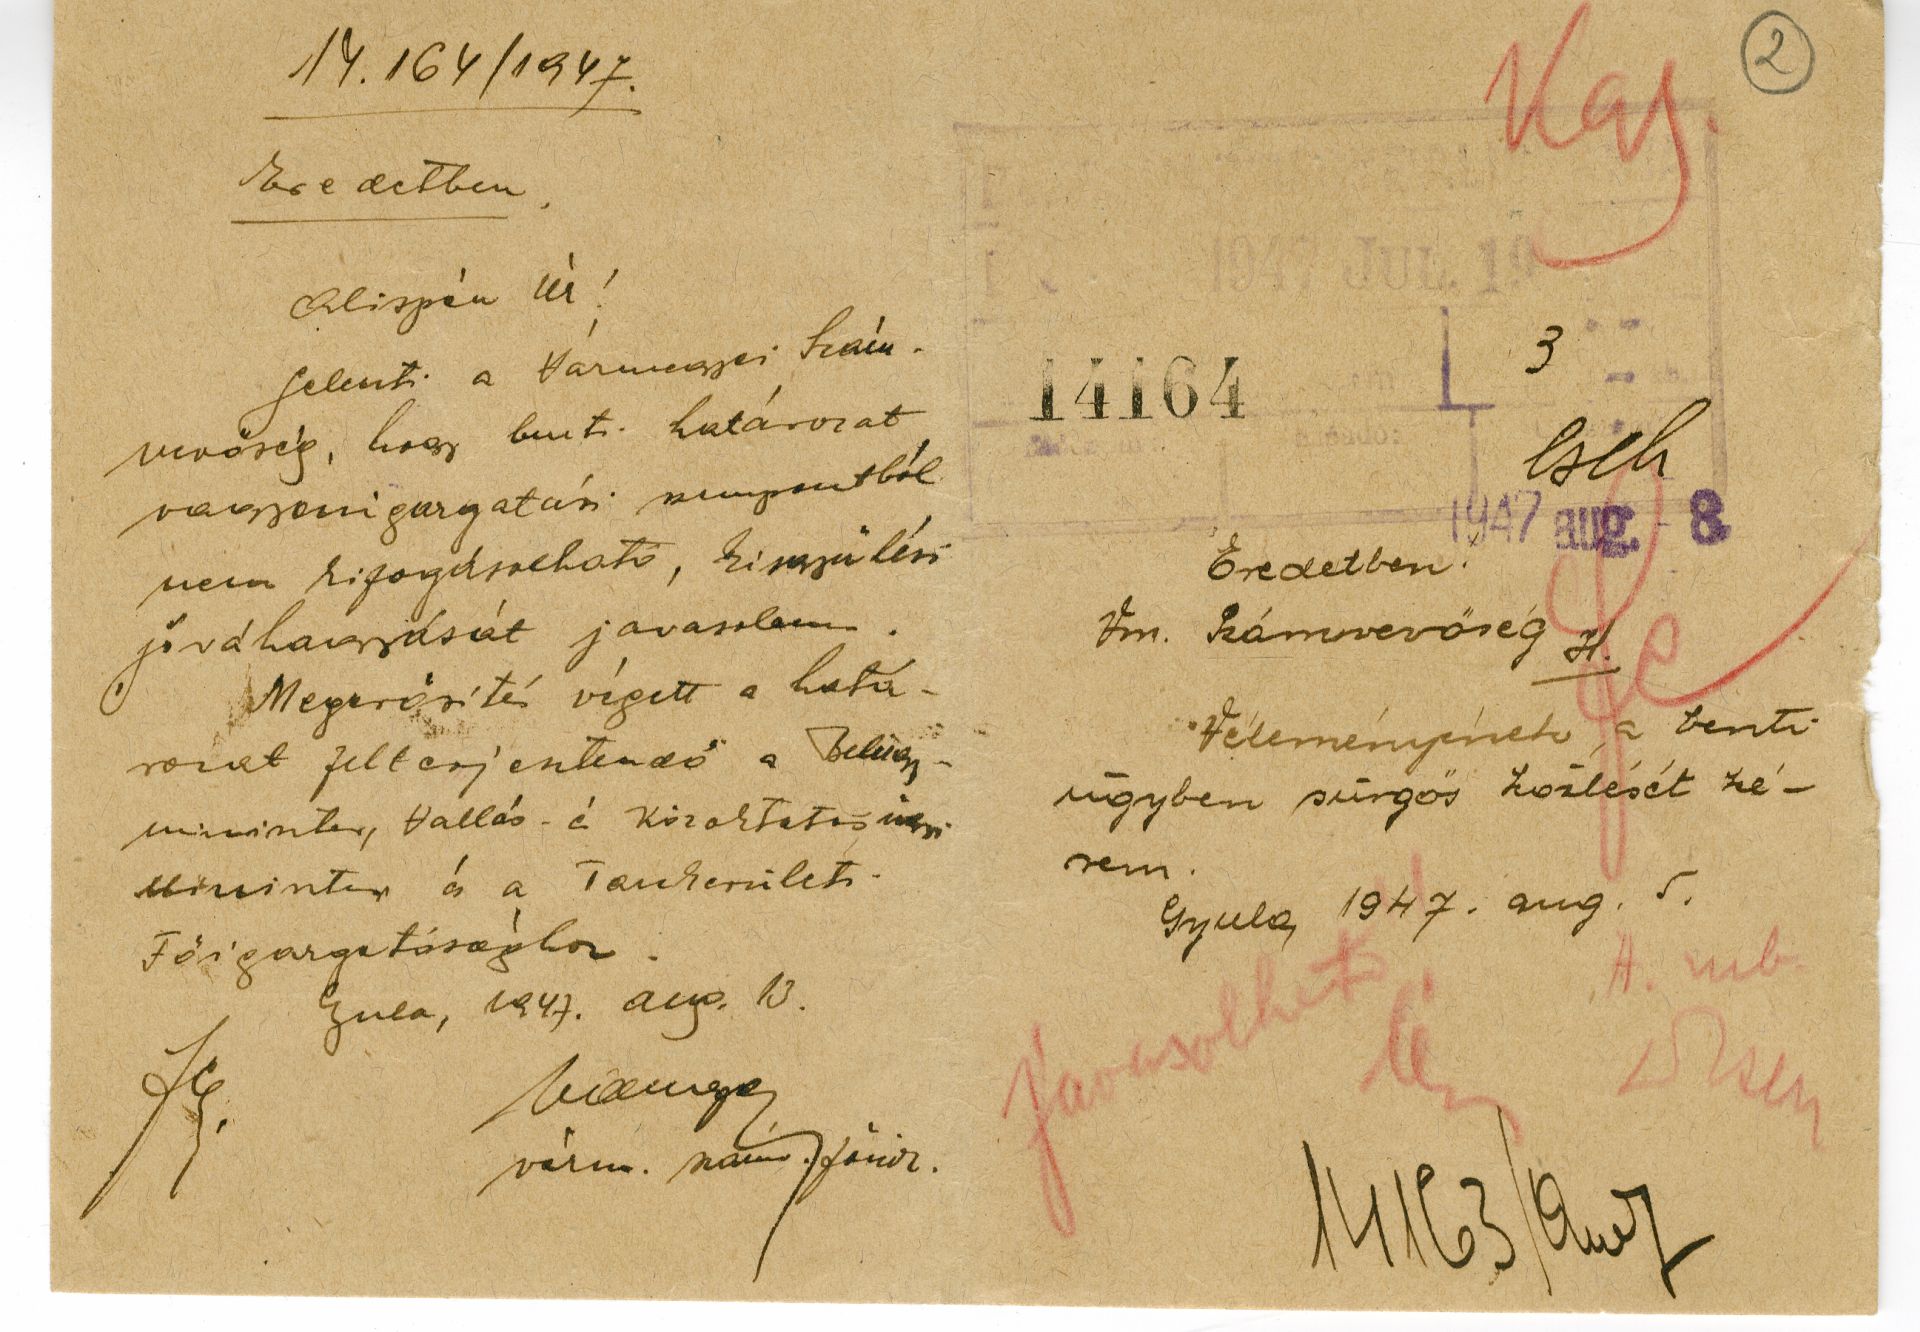 14.164/1947.
Eredetben.
Alispán Úr!
Jelenti a Vármegyei Szám-
vevőség, hogy benti határozat
vagyonigazgatási szempontból
nem kifogásolható, kisgyülési
jóváhagyását javasolom.
Megerősítés végett a hatá-
rozat felterjesztendő a Belügy-
miniszter, Vallás- és Közoktatásügyi
Miniszter és a Tankerületi
Főigazgatósághoz.
Gyula, 1947. aug. 13.
várm. számv. főnök.
2
1947 JUL. 19
14164
3
1947 aug. - 8.
Eredetben.
Vm. Számvevőség H.
Véleményének a benti
ügyben sürgős közlését ké-
rem.
Gyula, 1947. aug. 5.
Javasolhető
14163/